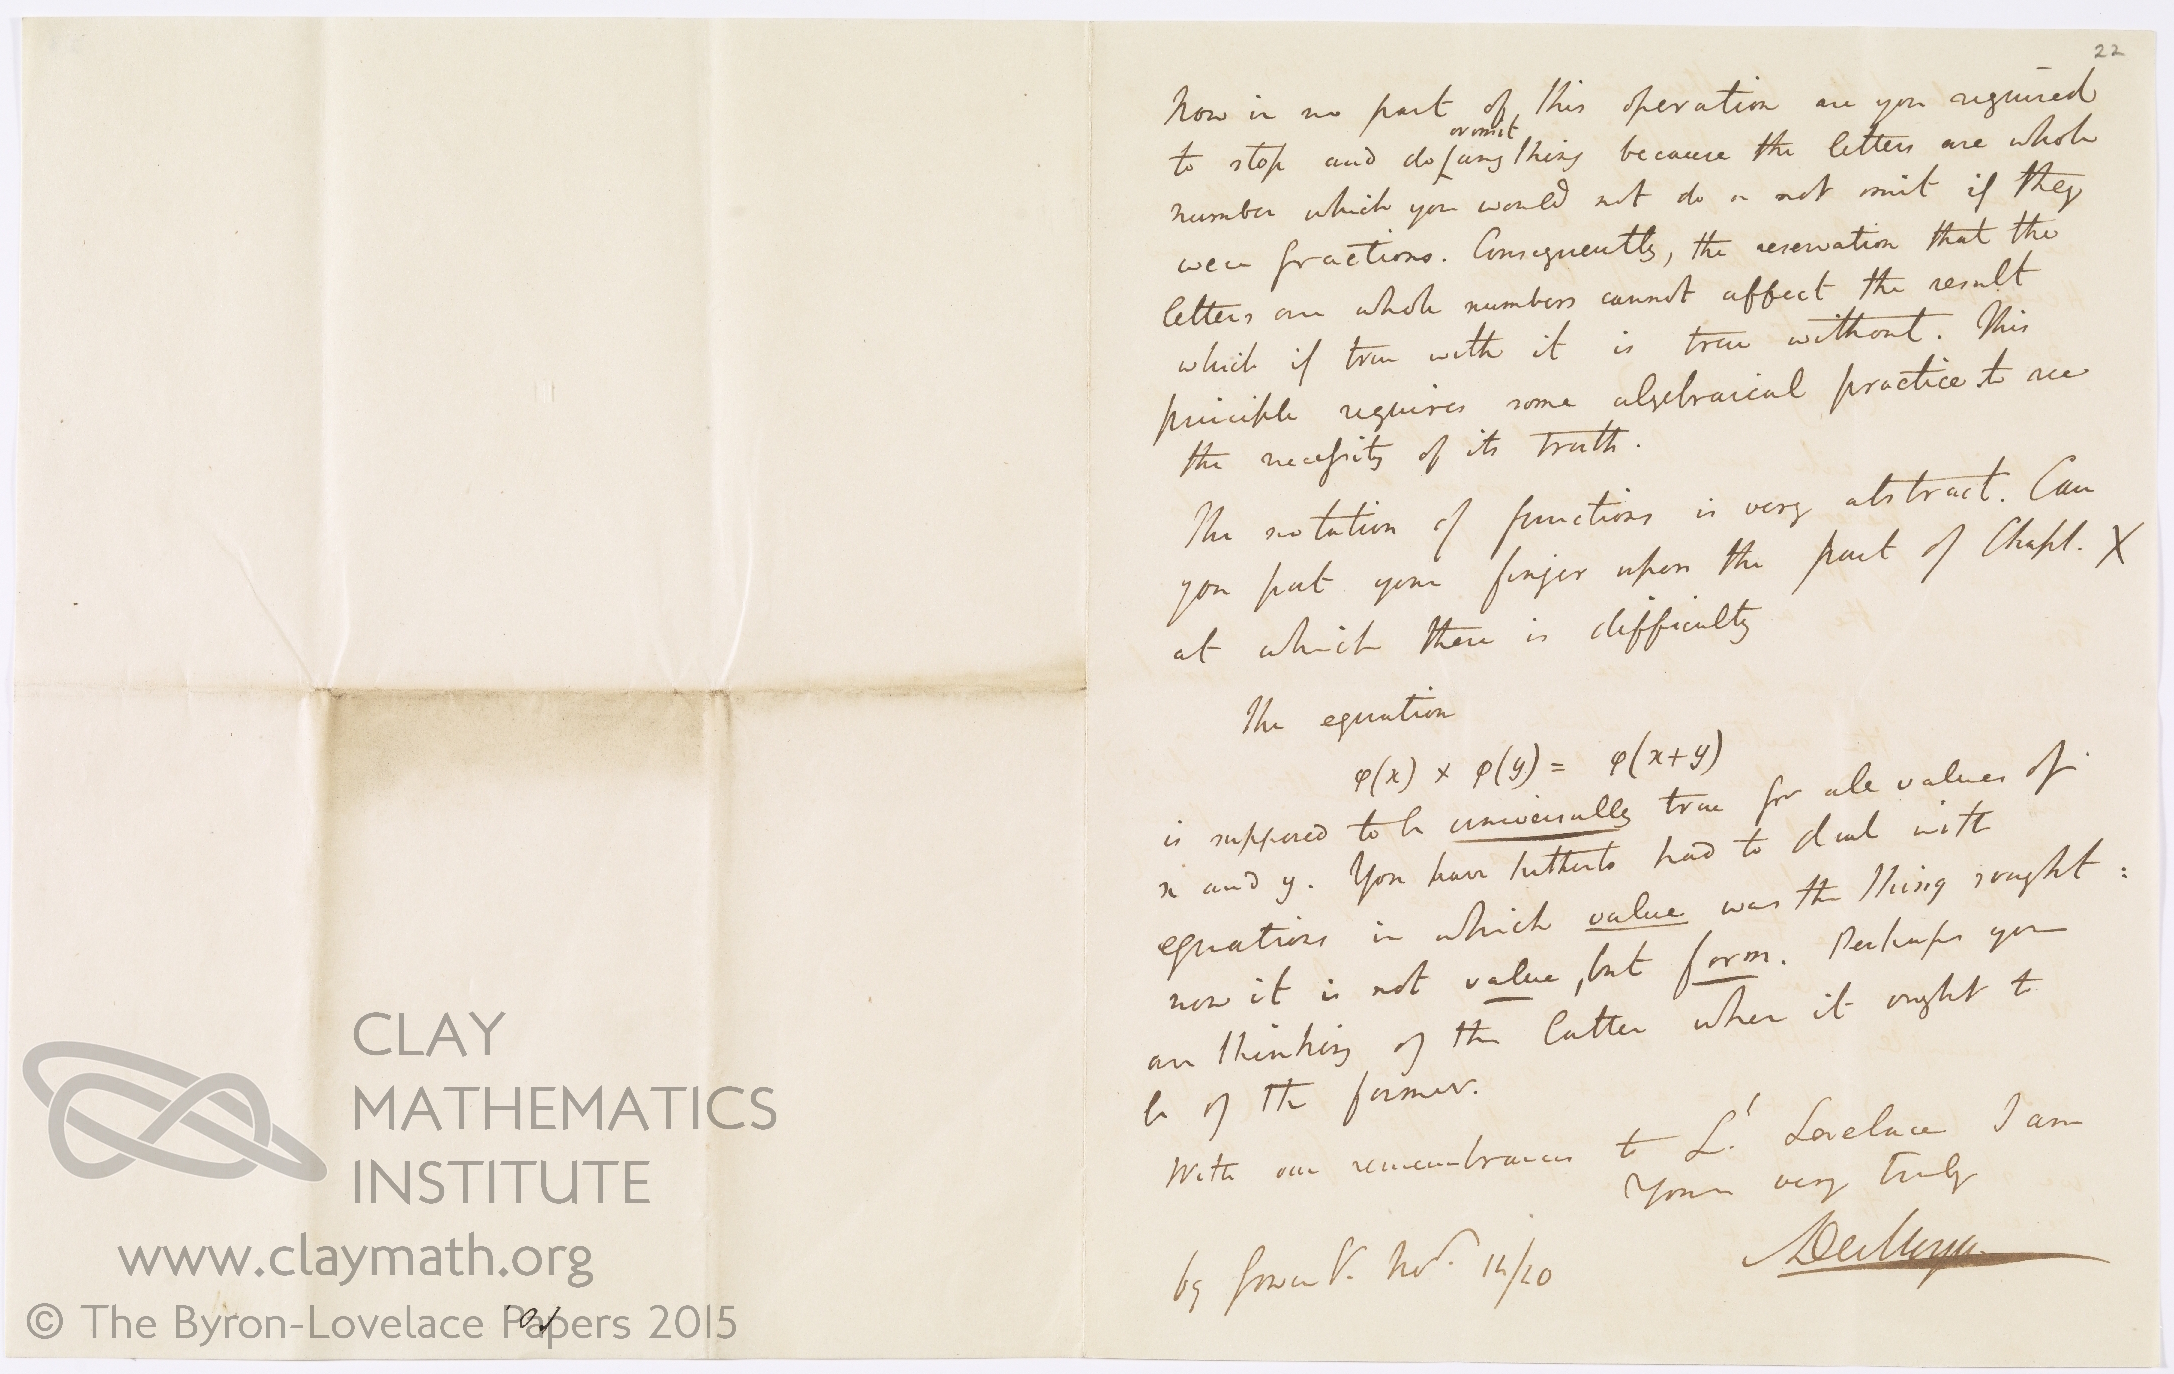 CLAY
MATHEMATICS
INSTITUTE
www.claymath.org
© The Byron-Lovelace Papers 2015
22
Now in no part of this operation are you required
or omit
to stop and do anything because the letters are whole
number which you would not do or not omit if they
were fractions. Consequently, the reservation that the
letters are whole numbers cannot affect the result
which if true with it is true without. This
principle requires some algebraical practice to see
the necessity of its truth.
The notation of functions is very abstract. Can
you put your finger upon the part of Chapt. X
at which there is difficulty
The equation
φ(x) × φ(y) = φ(x+y)
is supposed to be universally true for all values of
x and y. You have hitherto had to deal with
equations in which value was the thing sought :
now it is not value, but form. Perhaps you
are thinking of the latter when it ought to
be of the former.
With our remembrances to Ld Lovelace I am
Yours very truly
ADeMorgan
69 Gower St. Novr. 14/40